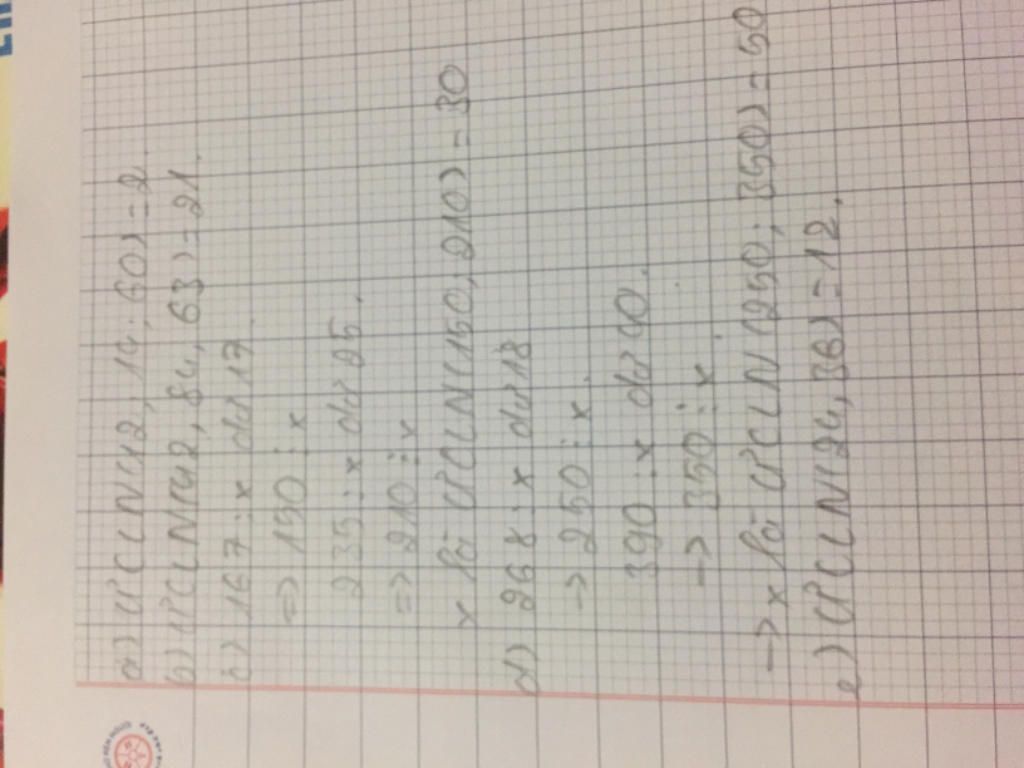 a) ƯCLN(12, 14, 60) = 2.
b) ƯCLN(42, 84, 63) = 21.
c) 167 : x dư 17.
=> 150 ⋮ x
235 : x dư 25.
=> 210 ⋮ x
x là ƯCLN(150; 210) = 30
d) 268 : x dư 18
-> 250 ⋮ x.
390 : x dư 40.
-> 350 ⋮ x.
-> x là ƯCLN(250; 350) = 50
e) ƯCLN(24, 36) = 12.